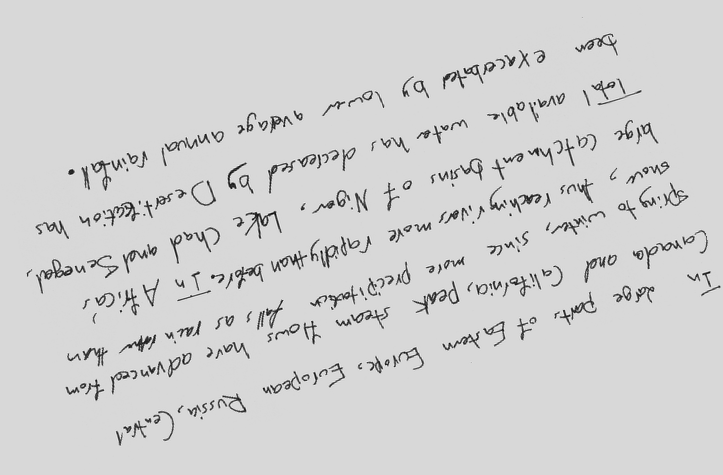 In large parts of Eastern Europe, European Russia, Central
Canada and California, peak steam flows have advanced from
spring to winter, since more precipitation falls as rain rather than
snow, thus reaching rivers more rapidly than before. In Africa's
large catchment basins of Niger, Lake Chad and Senegal,
Total available water has decreased by Desertification has
been exacerbated by lower average annual rainfal.